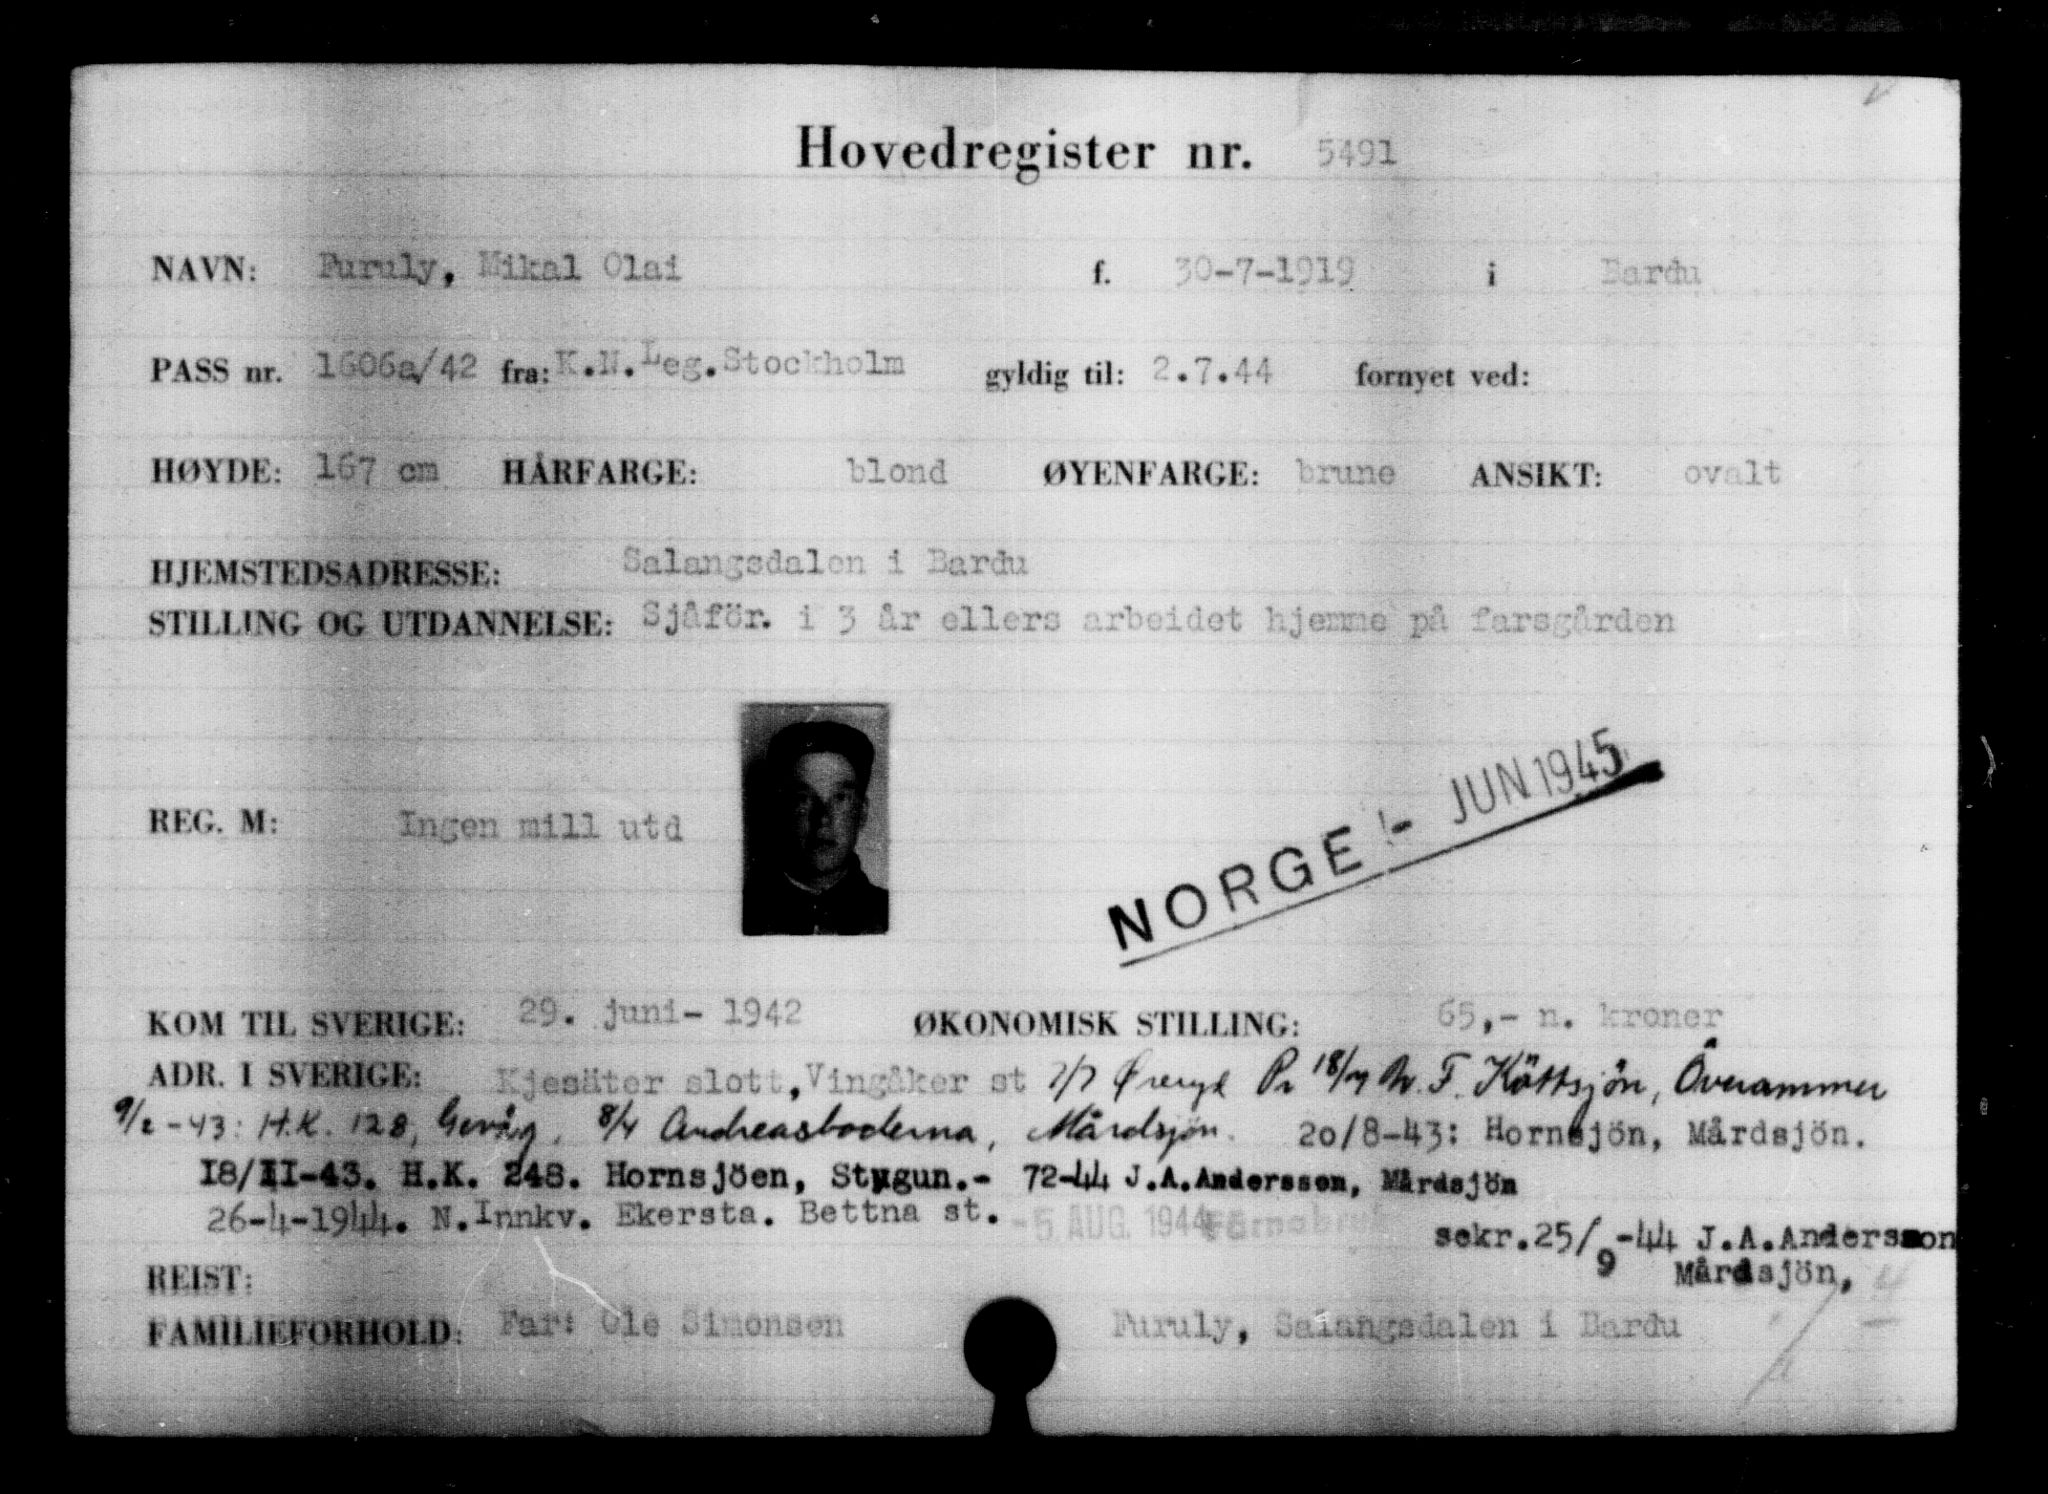 Hovedregister nr. 5491
NAVN: Furuly, Mikal Olai f. 30-7-1919 i Bardu
PASS nr. 1606a/42 fra: K.N.Leg.Stockholm gyldig til: 2.7.44 fornyet ved:
HØYDE: 167 cm HÅRFARGE: blond ØYENFARGE: brune ANSIKT: ovalt
HJEMSTEDSADRESSE: Salangsdalen i Bardu
STILLING OG UTDANNELSE: Sjåför. i 3 år ellers arbeidet hjemme på farsgården
REG. M: Ingen mill utd
NORGE - JUN 1945
KOM TIL SVERIGE: 29. juni- 1942 ØKONOMISK STILLING: 65,- n. kroner
ADR. I SVERIGE: Kjesäter slott, Vingåker st 7/7 18/7 F. Köttsjön, Överammer
9/2-43: H.K. 128, Gevåg. 8/4 Andreasboderna, Mårdsjön. 20/8-43: Hornsjön, Mårdsjön.
18/11-43. H.K. 248. Hornsjöen, Stugun.- 72-44 J.A.Andersson, Mårdsjön
26-4-1944. N.Innkv. Ekersta. Bettna st. -5 AUG. 1944
sekr.25/9-44 J.A.Andersson
Mårdsjön,
REIST:
FAMILIEFORHOLD: Far: Ole Simonsen Furuly, Salangsdalen i Bardu